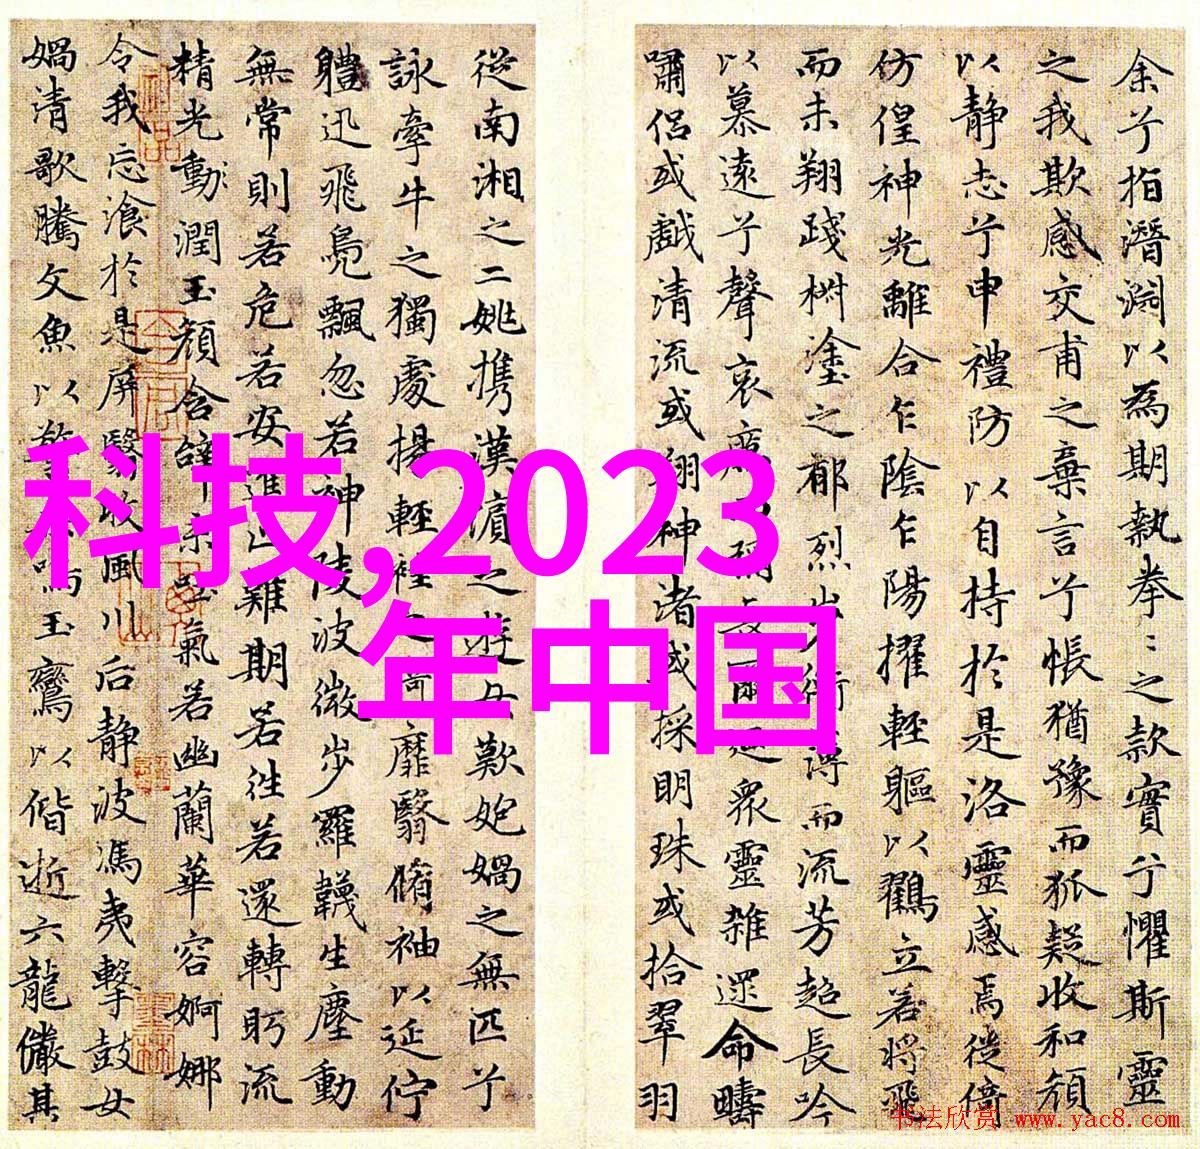 科技,2023
年中国
余兮指潛淵以為期執拳〻之款實兮懼斯靈
之我欺感交甫之棄言兮悵猶豫而狐疑收和顏
以靜志兮申禮防以自持於是洛靈感焉徙倚
仿偟神光離合乍陰乍陽擢輕軀以鶴立若將飛
而未翔踐椒塗之郁烈步蘅薄而流芳超長吟
以慕遠兮聲哀厲而彌長爾迺眾靈雜遝命疇
嘯侶或戲清流或翔神渚或採明珠或拾翠羽
從南湘之二姚攜漢濱之遊女歎匏媧之無匹兮
詠牽牛之獨處揚輕袿之猗靡翳脩袖以延佇
體迅飛鳧飄忽若神陵波微步羅韈生塵動
無常則若危若安進止難期若往若還轉眄流
精光動潤玉顏含辭未吐氣若幽蘭華容婀娜
令我忘飡於是屏翳收風川后靜波馮夷擊鼓女
媧清歌騰文魚以警乘鳴玉鸞以偕逝六龍儼其
书法欣赏 www.yac8.com